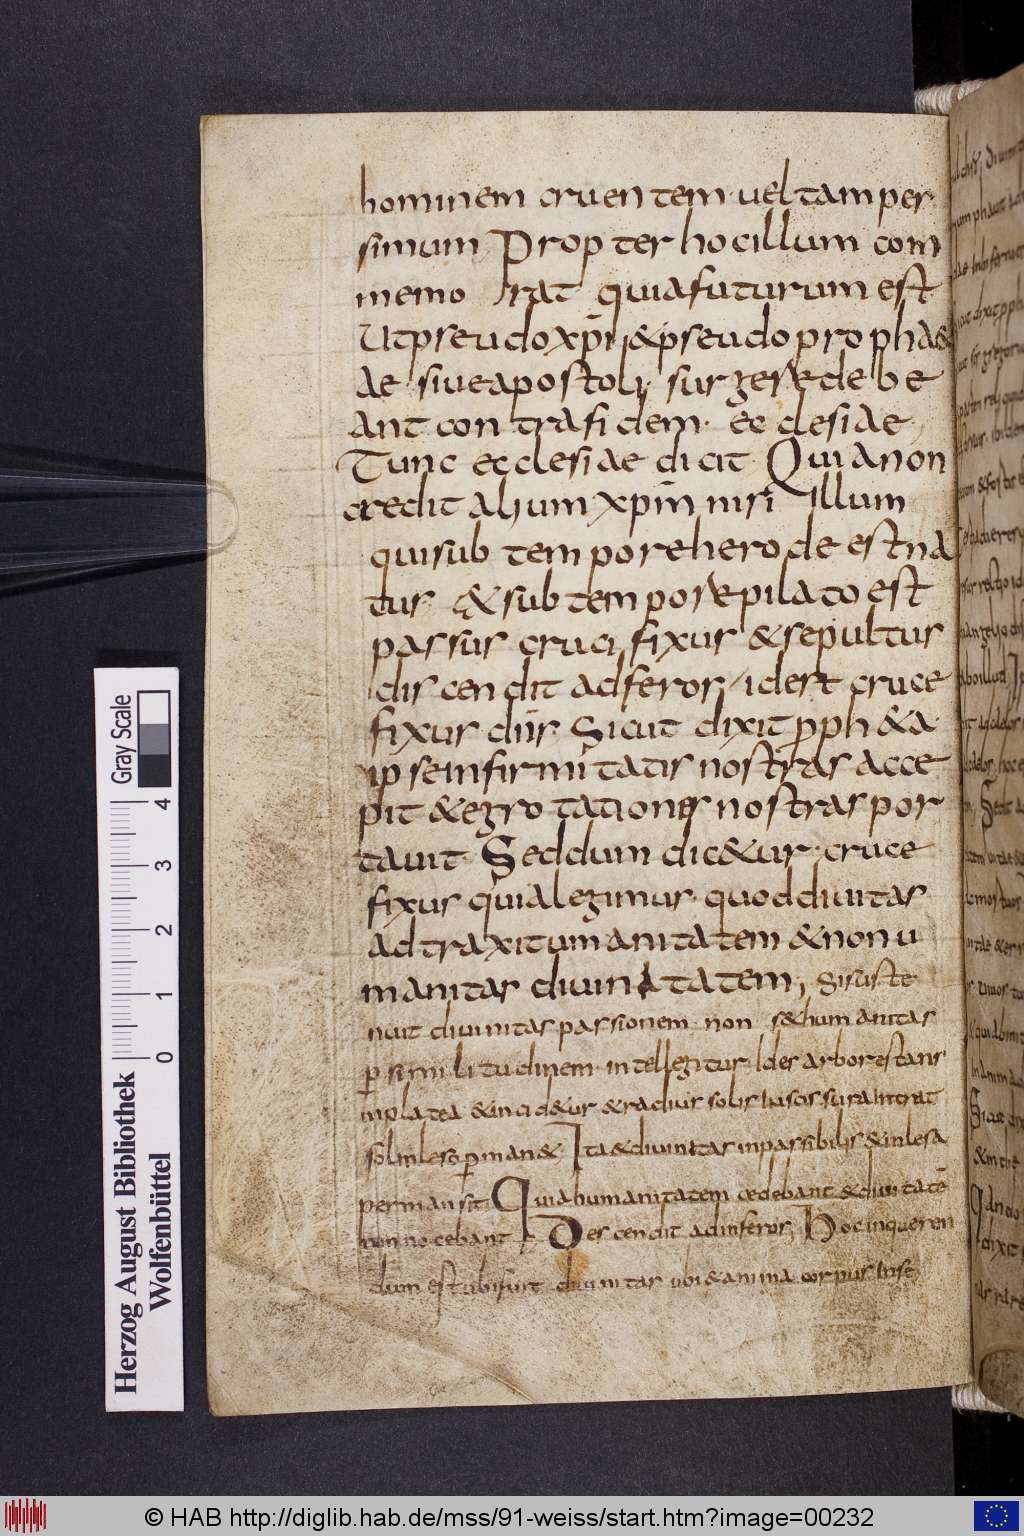 hominem cruentem vel tam pes
simum Propter hoc illum com
memo rat quia futurum est
Ut pseudo xpi & pseudo proph&
ae sive apostoli surgere debe
ant contra fidem ecclesiae
Tunc ecclesiae dicit Qui a non
credit alium xpm nisi illum
qui sub tempore herode est na
tus & sub tempore pilato est
passus crucifixus & sepultus
discendit ad feros id est cruce
fixus dns Sicut dixit proph&a
ipse infirmitatis nostras acce
pit & egrotationis nostras por
tavit Sed dum dic&ur cruce
fixus quia legimus quod divitas
adtraxit umanitatem & non u
manitas divinitatem, si suste
nuit divinitas passionem non s& humanitas
p similitudinem intellegitur Ides arbor estans
in platea & incid&ur & radius solis
sol inleso pman& Ita & divinitas inpassibilis & inlesa
permansit Quia humanitatem cedebant & divitatē
non nocebant Descendit ad inferos, Hoc inqueren
dum est ubi fuit divinitas ubi & anima corpus
Herzog August Bibliothek
Wolfenbüttel
Gray Scale
0 1 2 3 4
© HAB http://diglib.hab.de/mss/91-weiss/start.htm?image=00232